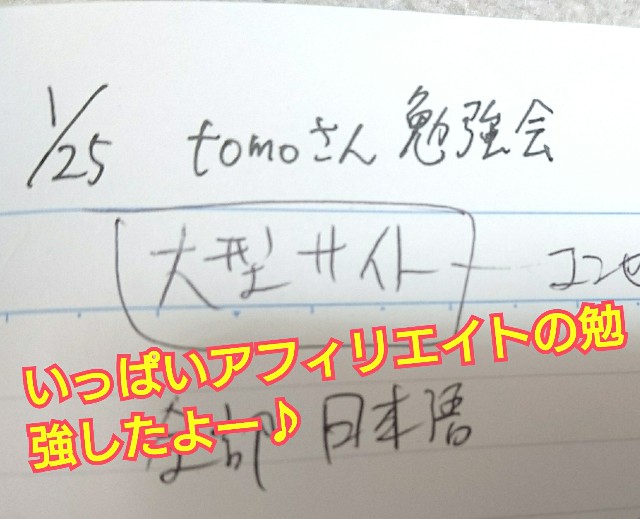 1/25 tomoさん 勉強会
大型サイト ― コンセ
いっぱいアフィリエイトの勉
強したよー♪
全部 日本語